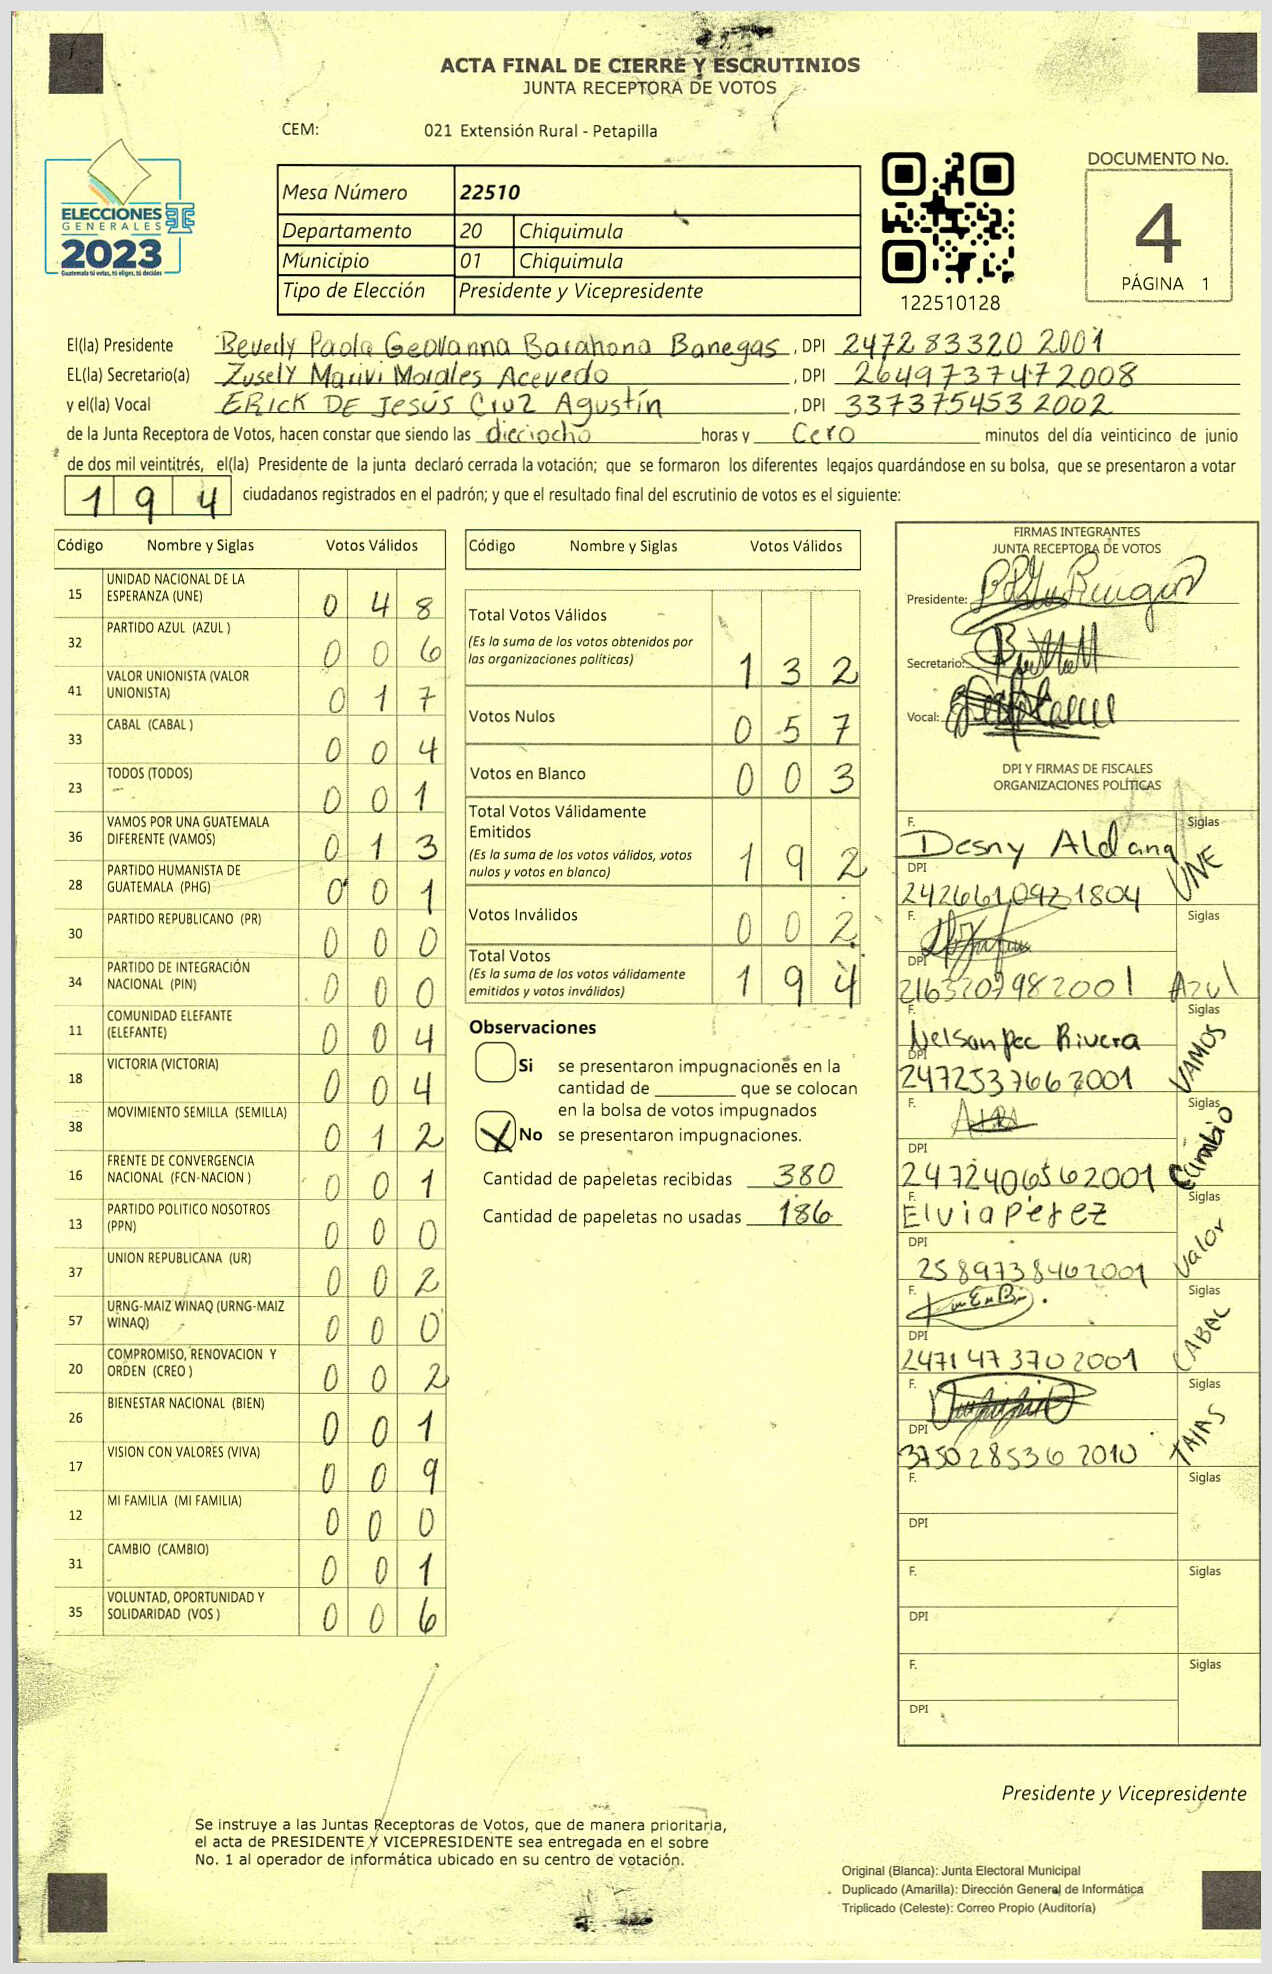 ACTA FINAL DE CIERRE Y ESCRUTINIOS
JUNTA RECEPTORA DE VOTOS
CEM: 021 Extensión Rural - Petapilla
ELECCIONES
GENERALES
2023
Guatemala tú votas, tú eliges, tú decides
Mesa Número 22510
Departamento 20 Chiquimula
Municipio 01 Chiquimula
Tipo de Elección Presidente y Vicepresidente
122510128
DOCUMENTO No.
4
PÁGINA 1
El(la) Presidente Beverly Paola Geovanna Barahona Banegas, DPI 2472 83320 2001
EL(la) Secretario(a) Zusely Marivi Morales Acevedo, DPI 2649737472008
y el(la) Vocal ERICK DE JESÚS Cruz Agustín, DPI 3373754532002
de la Junta Receptora de Votos, hacen constar que siendo las dieciocho horas y Cero minutos del día veinticinco de junio
de dos mil veintitrés, el(la) Presidente de la junta declaró cerrada la votación; que se formaron los diferentes legajos guardándose en su bolsa, que se presentaron a votar
194 ciudadanos registrados en el padrón; y que el resultado final del escrutinio de votos es el siguiente:
Código Nombre y Siglas Votos Válidos
15 UNIDAD NACIONAL DE LA ESPERANZA (UNE) 0 4 8
32 PARTIDO AZUL (AZUL ) 0 0 6
41 VALOR UNIONISTA (VALOR UNIONISTA) 0 1 7
33 CABAL (CABAL ) 0 0 4
23 TODOS (TODOS) 0 0 1
36 VAMOS POR UNA GUATEMALA DIFERENTE (VAMOS) 0 1 3
28 PARTIDO HUMANISTA DE GUATEMALA (PHG) 0 0 1
30 PARTIDO REPUBLICANO (PR) 0 0 0
34 PARTIDO DE INTEGRACIÓN NACIONAL (PIN) 0 0 0
11 COMUNIDAD ELEFANTE (ELEFANTE) 0 0 4
18 VICTORIA (VICTORIA) 0 0 4
38 MOVIMIENTO SEMILLA (SEMILLA) 0 1 2
16 FRENTE DE CONVERGENCIA NACIONAL (FCN-NACION ) 0 0 1
13 PARTIDO POLITICO NOSOTROS (PPN) 0 0 0
37 UNION REPUBLICANA (UR) 0 0 2
57 URNG-MAIZ WINAQ (URNG-MAIZ WINAQ) 0 0 0
20 COMPROMISO, RENOVACION Y ORDEN (CREO ) 0 0 2
26 BIENESTAR NACIONAL (BIEN) 0 0 1
17 VISION CON VALORES (VIVA) 0 0 9
12 MI FAMILIA (MI FAMILIA) 0 0 0
31 CAMBIO (CAMBIO) 0 0 1
35 VOLUNTAD, OPORTUNIDAD Y SOLIDARIDAD (VOS ) 0 0 6
Código Nombre y Siglas Votos Válidos
Total Votos Válidos
(Es la suma de los votos obtenidos por
las organizaciones políticas) 1 3 2
Votos Nulos 0 5 7
Votos en Blanco 0 0 3
Total Votos Válidamente
Emitidos
(Es la suma de los votos válidos, votos
nulos y votos en blanco) 1 9 2
Votos Inválidos 0 0 2
Total Votos
(Es la suma de los votos válidamente
emitidos y votos inválidos) 1 9 4
Observaciones
Si se presentaron impugnaciones en la
cantidad de ________ que se colocan
en la bolsa de votos impugnados
X No se presentaron impugnaciones.
Cantidad de papeletas recibidas 380
Cantidad de papeletas no usadas 186
FIRMAS INTEGRANTES
JUNTA RECEPTORA DE VOTOS
Presidente:
Secretario:
Vocal:
DPI Y FIRMAS DE FISCALES
ORGANIZACIONES POLÍTICAS
F. Desny Aldana Siglas UNE
DPI
F. Siglas Azul
DPI 2163207982001
F. Nelson Rivera Siglas VAMOS
DPI 2472537662001
F. Siglas Cambio
DPI 2472406562001
F. Elvia Pérez Siglas Valor
DPI 2589738462001
F. Siglas CABAL
DPI 2471473702001
F. Siglas
DPI 3750285362010
F. Siglas
DPI
F. Siglas
DPI
F. Siglas
DPI
Presidente y Vicepresidente
Se instruye a las Juntas Receptoras de Votos, que de manera prioritaria,
el acta de PRESIDENTE Y VICEPRESIDENTE sea entregada en el sobre
No. 1 al operador de informática ubicado en su centro de votación.
Original (Blanca): Junta Electoral Municipal
Duplicado (Amarilla): Dirección General de Informática
Triplicado (Celeste): Correo Propio (Auditoría)